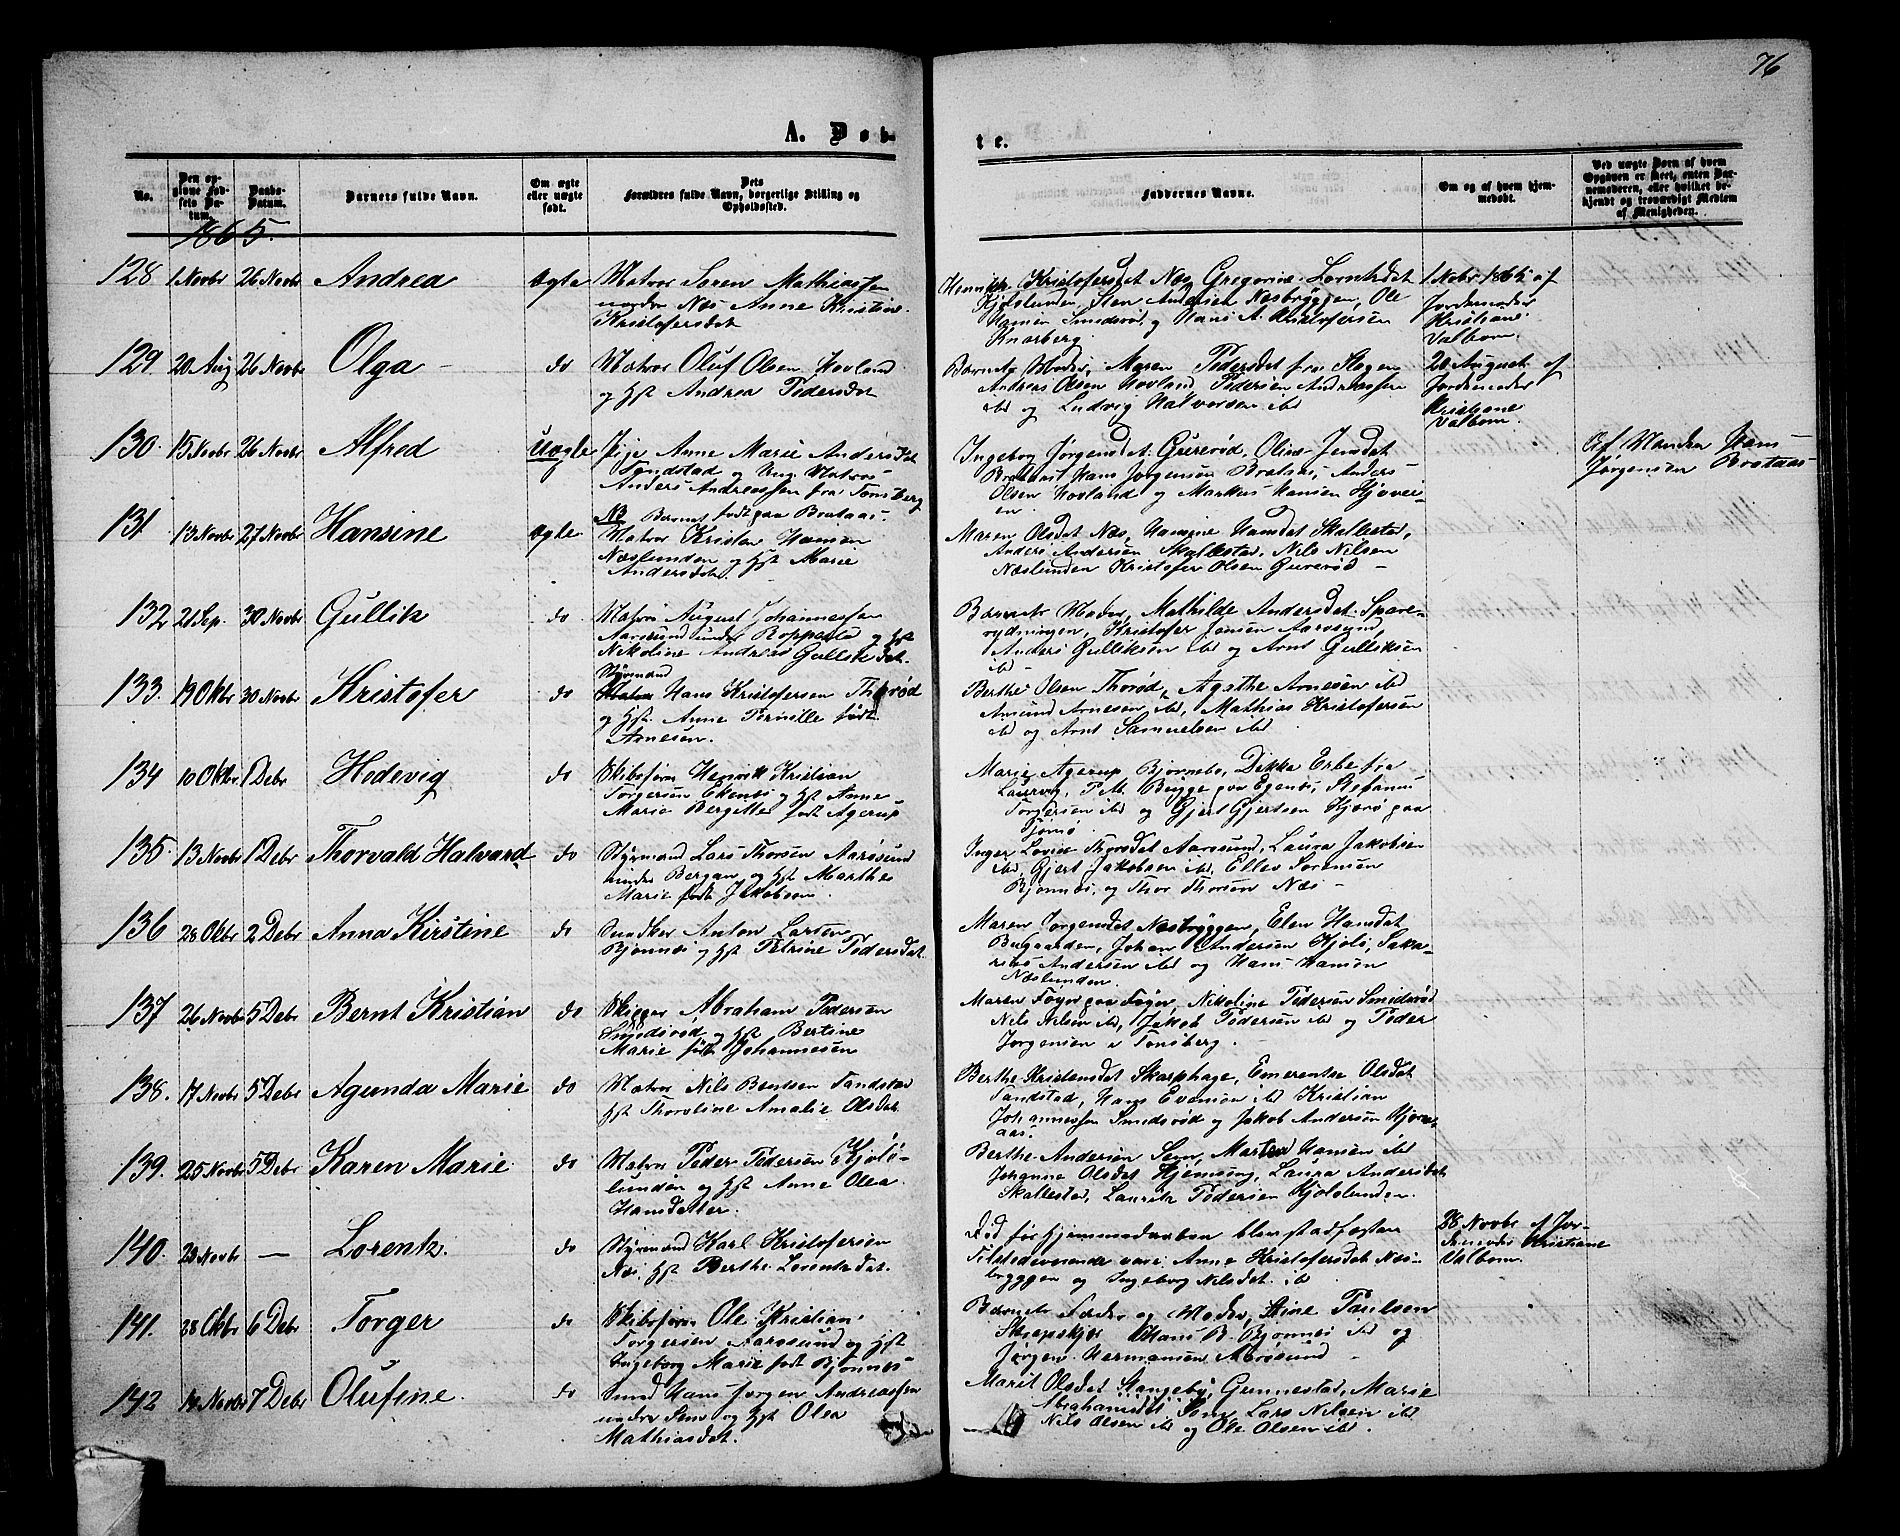 76
A. Døb-
te.
No.
Den op-
givne Fød-
sels Da-
tum.
Daabs-
Datum.
Barnets fulde Navn.
Om ægte
eller uægte
født.
Dets
Forældres fulde Navn, borgerlige Stilling og
Opholdssted.
Faddernes Navne.
Om og af hvem hjem-
medøbt.
Ved uægte Børn af hvem
Opgaven er skeet, enten Bar-
nemoderen, eller hvilket be-
kjendt og troværdigt Medlem
af Menigheden.
1865.
128 1 Novbr 26 Novbr Andrea ægte Matros Søren Mathiassen
nordre Næs Anne Kristine
Kristofersdat
Kristofersdat Næs Gregoria Lorntsdat
Andersen Næsbryggen, Ole
Hansen Smidsrød, og Hans A. Kristofersen
Knarberg.
1 Nobr 1865 af
Jordemoder
Kristiane
Valbom.
129 20 Aug 26 Novbr Olga do Matros Oluf Olsen Hovland
og Hst Andrea Pedersdat
Barnets Moder, Maren Pedersdat fra Slagen
Andreas Olsen Hovland, Pedersen Andreassen
ibd og Ludvig Halvorsen ibd
20 August af
Jordemoder
Kristiane
Valbom.
130. 15 Novbr 26 Novbr Alfred Uægte Pige Anne Marie Andersdat
Sandstad og Ung Matros
Anders Andreassen fra Tønsberg
NB Barnet født paa Brataas.
Ingebog Jørgensdat Gurerød, Oline Jensdat
Brataas Hans Jørgensen Brataas, Anders
Olsen Hovland og Markus Hansen Hjover-
en
Af Manden Hans
Jørgensen Brataas
131 13 Novbr 27 Novbr Hansine ægte Matros Kristen Hansen
Næslunden og Hst Marie
Andersdat.
Maren Olsdat Næs, Hansine Hansdat Skallestad,
Anders Andersen Skallestad, Nils Nilsen
Næslunden Kristofer Olsen Gurerød –
132 21 Sep. 30 Novbr Gullik do Matros August Johannessen
Aarøsund under Roppestad og Hst
Nikoline Andrea Gulliksdat.
Barnets Moder, Mathilde Andersdat Spare-
rydningen, Kristofer Jensen Aarøsund,
Anders Gulliksen ibd og Arnt Gulliksen
ibd –
133. 19 Oktbr 30 Novbr Kristofer do Styrmand
Matros Hans Kristofersen Thorød
og Hst. Anne Pernille født
Arnesen.
Berthe Olsen Thorød, Agathe Arnesen ibd
Amund Arnesen ibd, Mathias Kristofersen
ibd og Arnt Samuelsen ibd
134 10 Oktbr 1 Debr Hedevig do Skibsfører Henrik Kristian
Torgersen Ekenes og Hst Anne
Marie Bergitte født Agerup
Marie Agerup Bjørnebo, Dikka Erbe fra
Laurvig, P.M. Bugge paa Egenes, Stefanus
Torgersen ibd og Gjert Gjertsen Hjerø paa
Tjømø
135. 13 Novbr 1 Debr Thorvald Halvard do Styrmand Lars Thorsen Aarøsund
under Bergan og Hst Marthe
Marie født Jakobsen.
Inger Lovise Thorsdat Aarøsund, Laura Jakobsen
ibd, Gjert Jakobsen ibd, Ellev Sørensen
Bjønnes, og Thor Thorsen Næs –
136 28 Oktbr 2 Debr Anna Kirstine do Snedker Anton Larsen
Bjønnes og Hst Petrine Pedersdat.
Maren Jørgensdat Næsbryggen, Elen Hansdat
Bugaarden, Johan Andersen Kjøle, Saka-
rias Andersen ibd og Hans Hansen
Næslunden.
137 26 Novbr 5 Debr Bernt Kristian do Skipper Abraham Pedersen
Smidsrød og Hst Bertine
Marie født Johannesen
Maren Føyn paa Føyn, Nikoline Pedersen Smidsrød
Nils Nilsen ibd, Jakob Pedersen ibd og Peder
Jørgensen i Tønsberg.
138. 17 Novbr 5 Debr Agunda Marie do Matros Nils Bentsen Sandstad
Hst Thoroline Amalie Olsdat
Berthe Kristensdat Skarphage, Emerentse Olsdat
Sandstad, Hans Evensen ibd Kristian
Johannessen Smidsrød og Jakob Andersen Hjover-
aas.
139. 25 Novbr 5 Debr Karen Marie do Matros Peder Pedersen Kjøle-
lunden og Hst Anne Olea
Hansdatter.
Berthe Andersen Sem, Marten Hansen ibd
Johanne Olsdat Hjemseng, Laura Andersdat
Skallestad, Laurits Pedersen Kjølelunden.
140. 28 Novbr — Lorentz. do Styrmand Karl Kristofersen
Næs, Hst Berthe Lorentzdat.
Død før Hjemmedaaben blev stadfæstet
Tilstedeværende vare: Anne Kristofersdat Næs-
bryggen og Ingeborg Nilsdat ibd
28 Novbr af Jor-
demoder Kristiane
Valbom.
141. 28 Oktbr 6 Debr Torger do Skibsfører Ole Kristian
Torgersen Aarøsund og Hst
Ingeborg Marie født Bjønnes
Barnets Fader og Moder, Stine Paulsen
Hans B. Bjønnes ibd og
Jørgen Hermansen Aarøsund –
142 14 Novbr 7 Debr Olufine. do Smed Hans Jørgen Andreassen
under Sem og Hst Olea
Mathiasdat.
Marit Olsdat Stangeby, Gunnestad, Marie
Abrahamsdat Sem Lars Nilsen ibd
Nils Olsen ibd og Ole Olsen ibd.